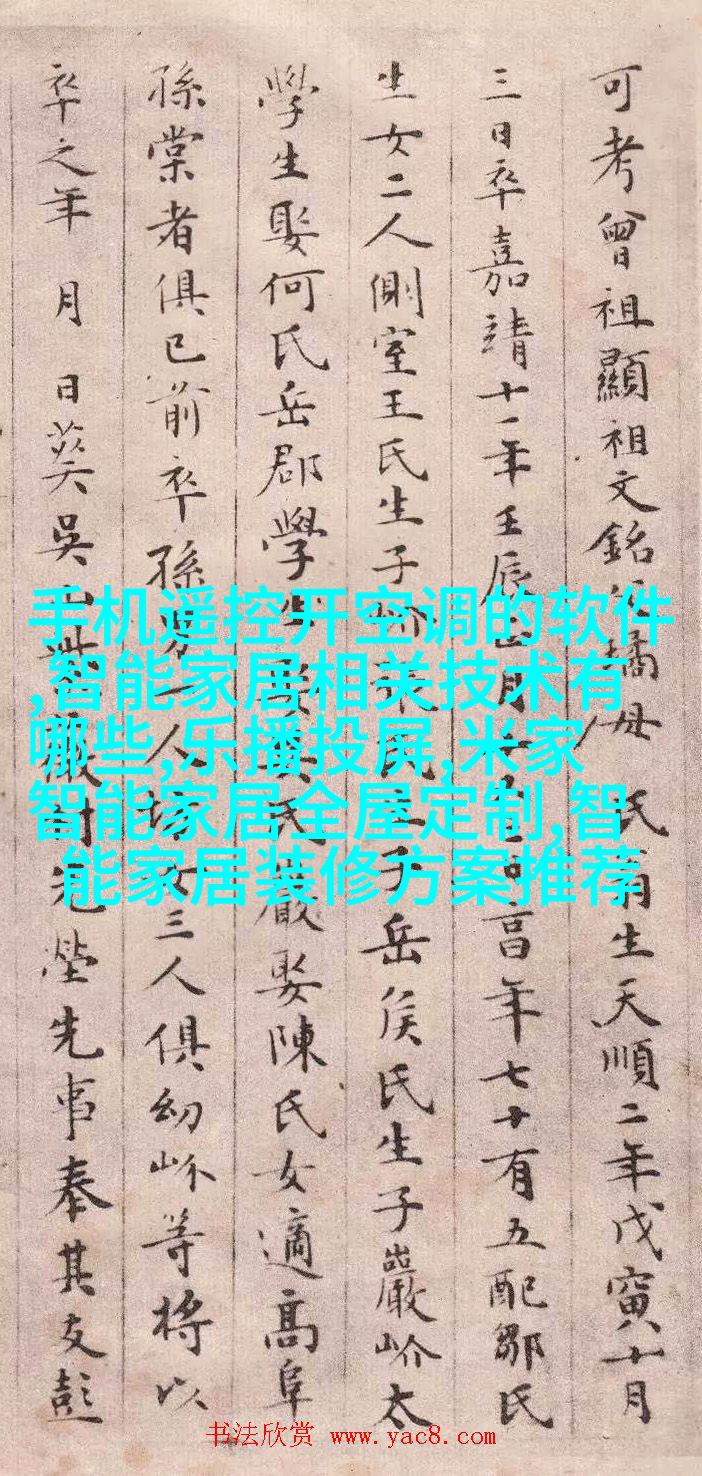 可考曾祖顯祖文銘母 氏生天順二年戊寅十月
三日卒嘉靖十一年壬辰月年七十有五配鄒氏
生女二人側室王氏生子氏生子岳侯氏生子巖岕太
學生娶何氏岳郡學生娶氏巖娶陳氏女適高阜
孫棠者俱已前卒孫人女三人俱幼岕等將以
卒之年 月 日葬吳山先塋先事奉其友彭
手机遥控开空调的软件
,智能家居相关技术有
哪些,乐播投屏,米家
智能家居全屋定制,智
能家居装修方案推荐
书法欣赏 www.yac8.com